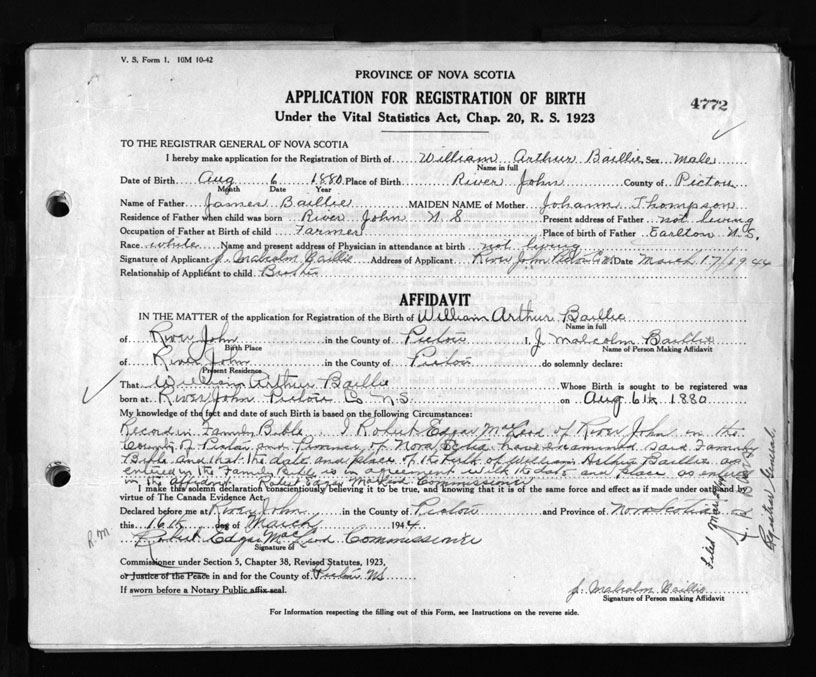 V. S. Form 1. 10M 10-42
PROVINCE OF NOVA SCOTIA
APPLICATION FOR REGISTRATION OF BIRTH
4772
Under the Vital Statistics Act, Chap. 20, R. S. 1923
TO THE REGISTRAR GENERAL OF NOVA SCOTIA
I hereby make application for the Registration of Birth of William Arthur Baillie Sex Male
Name in full
Date of Birth Aug 6 1880 Place of Birth River John County of Pictou
Month Date Year
Name of Father James Baillie MAIDEN NAME of Mother Johann Thompson
Residence of Father when child was born River John N S Present address of Father not living
Occupation of Father at Birth of child Farmer Place of birth of Father Earlton N.S.
Race white Name and present address of Physician in attendance at birth not living
Signature of Applicant J. Malcolm Baillie Address of Applicant River John Pictou Co NS Date March 17/1944
Relationship of Applicant to child Brother
AFFIDAVIT
IN THE MATTER of the application for Registration of the Birth of William Arthur Baillie
Name in full
of River John in the County of Pictou I, J Malcolm Baillie
Birth Place Name of Person Making Affidavit
of River John in the County of Pictou do solemnly declare:
Present Residence
That William Arthur Baillie Whose Birth is sought to be registered was
born at River John Pictou Co N.S. on Aug 6th 1880
My knowledge of the fact and date of such Birth is based on the following Circumstances:
Record in Family Bible I Robert Edgar MacLeod of River John in the
County of Pictou and Province of Nova Scotia have examined said Family
Bible and that the date and place of the birth of William Arthur Baillie as
entered in the Family Bible is in agreement with the date and place as
in the affidavit Robert Edgar MacLeod Commissioner
I make this solemn declaration conscientiously believing it to be true, and knowing that it is of the same force and effect as if made under oath and by
virtue of The Canada Evidence Act.
Declared before me at River John in the County of Pictou and Province of Nova Scotia
this 16th day of March 1944
R M
Robert Edgar MacLeod Commissioner
Signature of
Commissioner under Section 5, Chapter 38, Revised Statutes, 1923,
or Justice of the Peace in and for the County of Pictou NS
If sworn before a Notary Public affix seal.
J. Malcolm Baillie
Signature of Person making Affidavit
For Information respecting the filling out of this Form, see Instructions on the reverse side.
Filed
Registrar General.